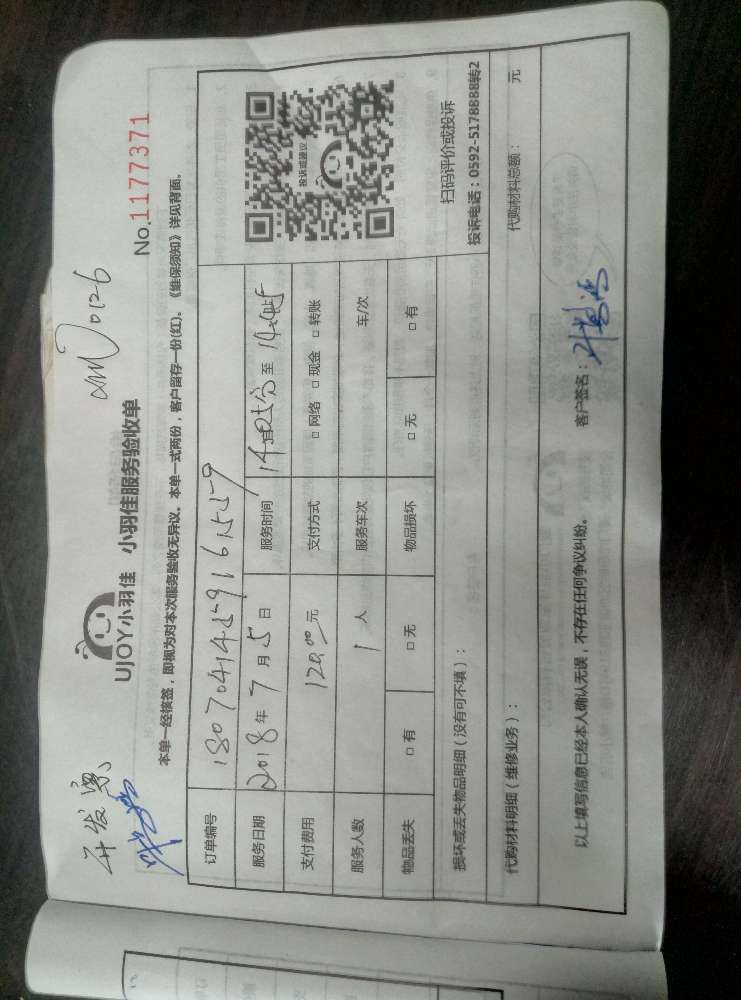 开发票
xm0126
UJOY小羽佳 小羽佳服务验收单
No.1177371
本单一经核签，即视为对本次服务验收无异议。本单一式两份，客户留存一份(红)。《维保须知》详见背面。
订单编号 180704145916
服务日期 2018年7月5日 服务时间 14时05分至
支付费用 120.00元 支付方式 □网络 □现金 □转账
服务人数 1人 服务车次 车/次
物品丢失 □有 □无 物品损坏 □无 □有
投诉或建议
扫码评价或投诉
投诉电话：0592-5178888转2
损坏或丢失物品明细（没有可不填）：
代购材料明细（维修业务）： 代购材料总额： 元
以上填写信息已经本人确认无误，不存在任何争议纠纷。 客户签名：